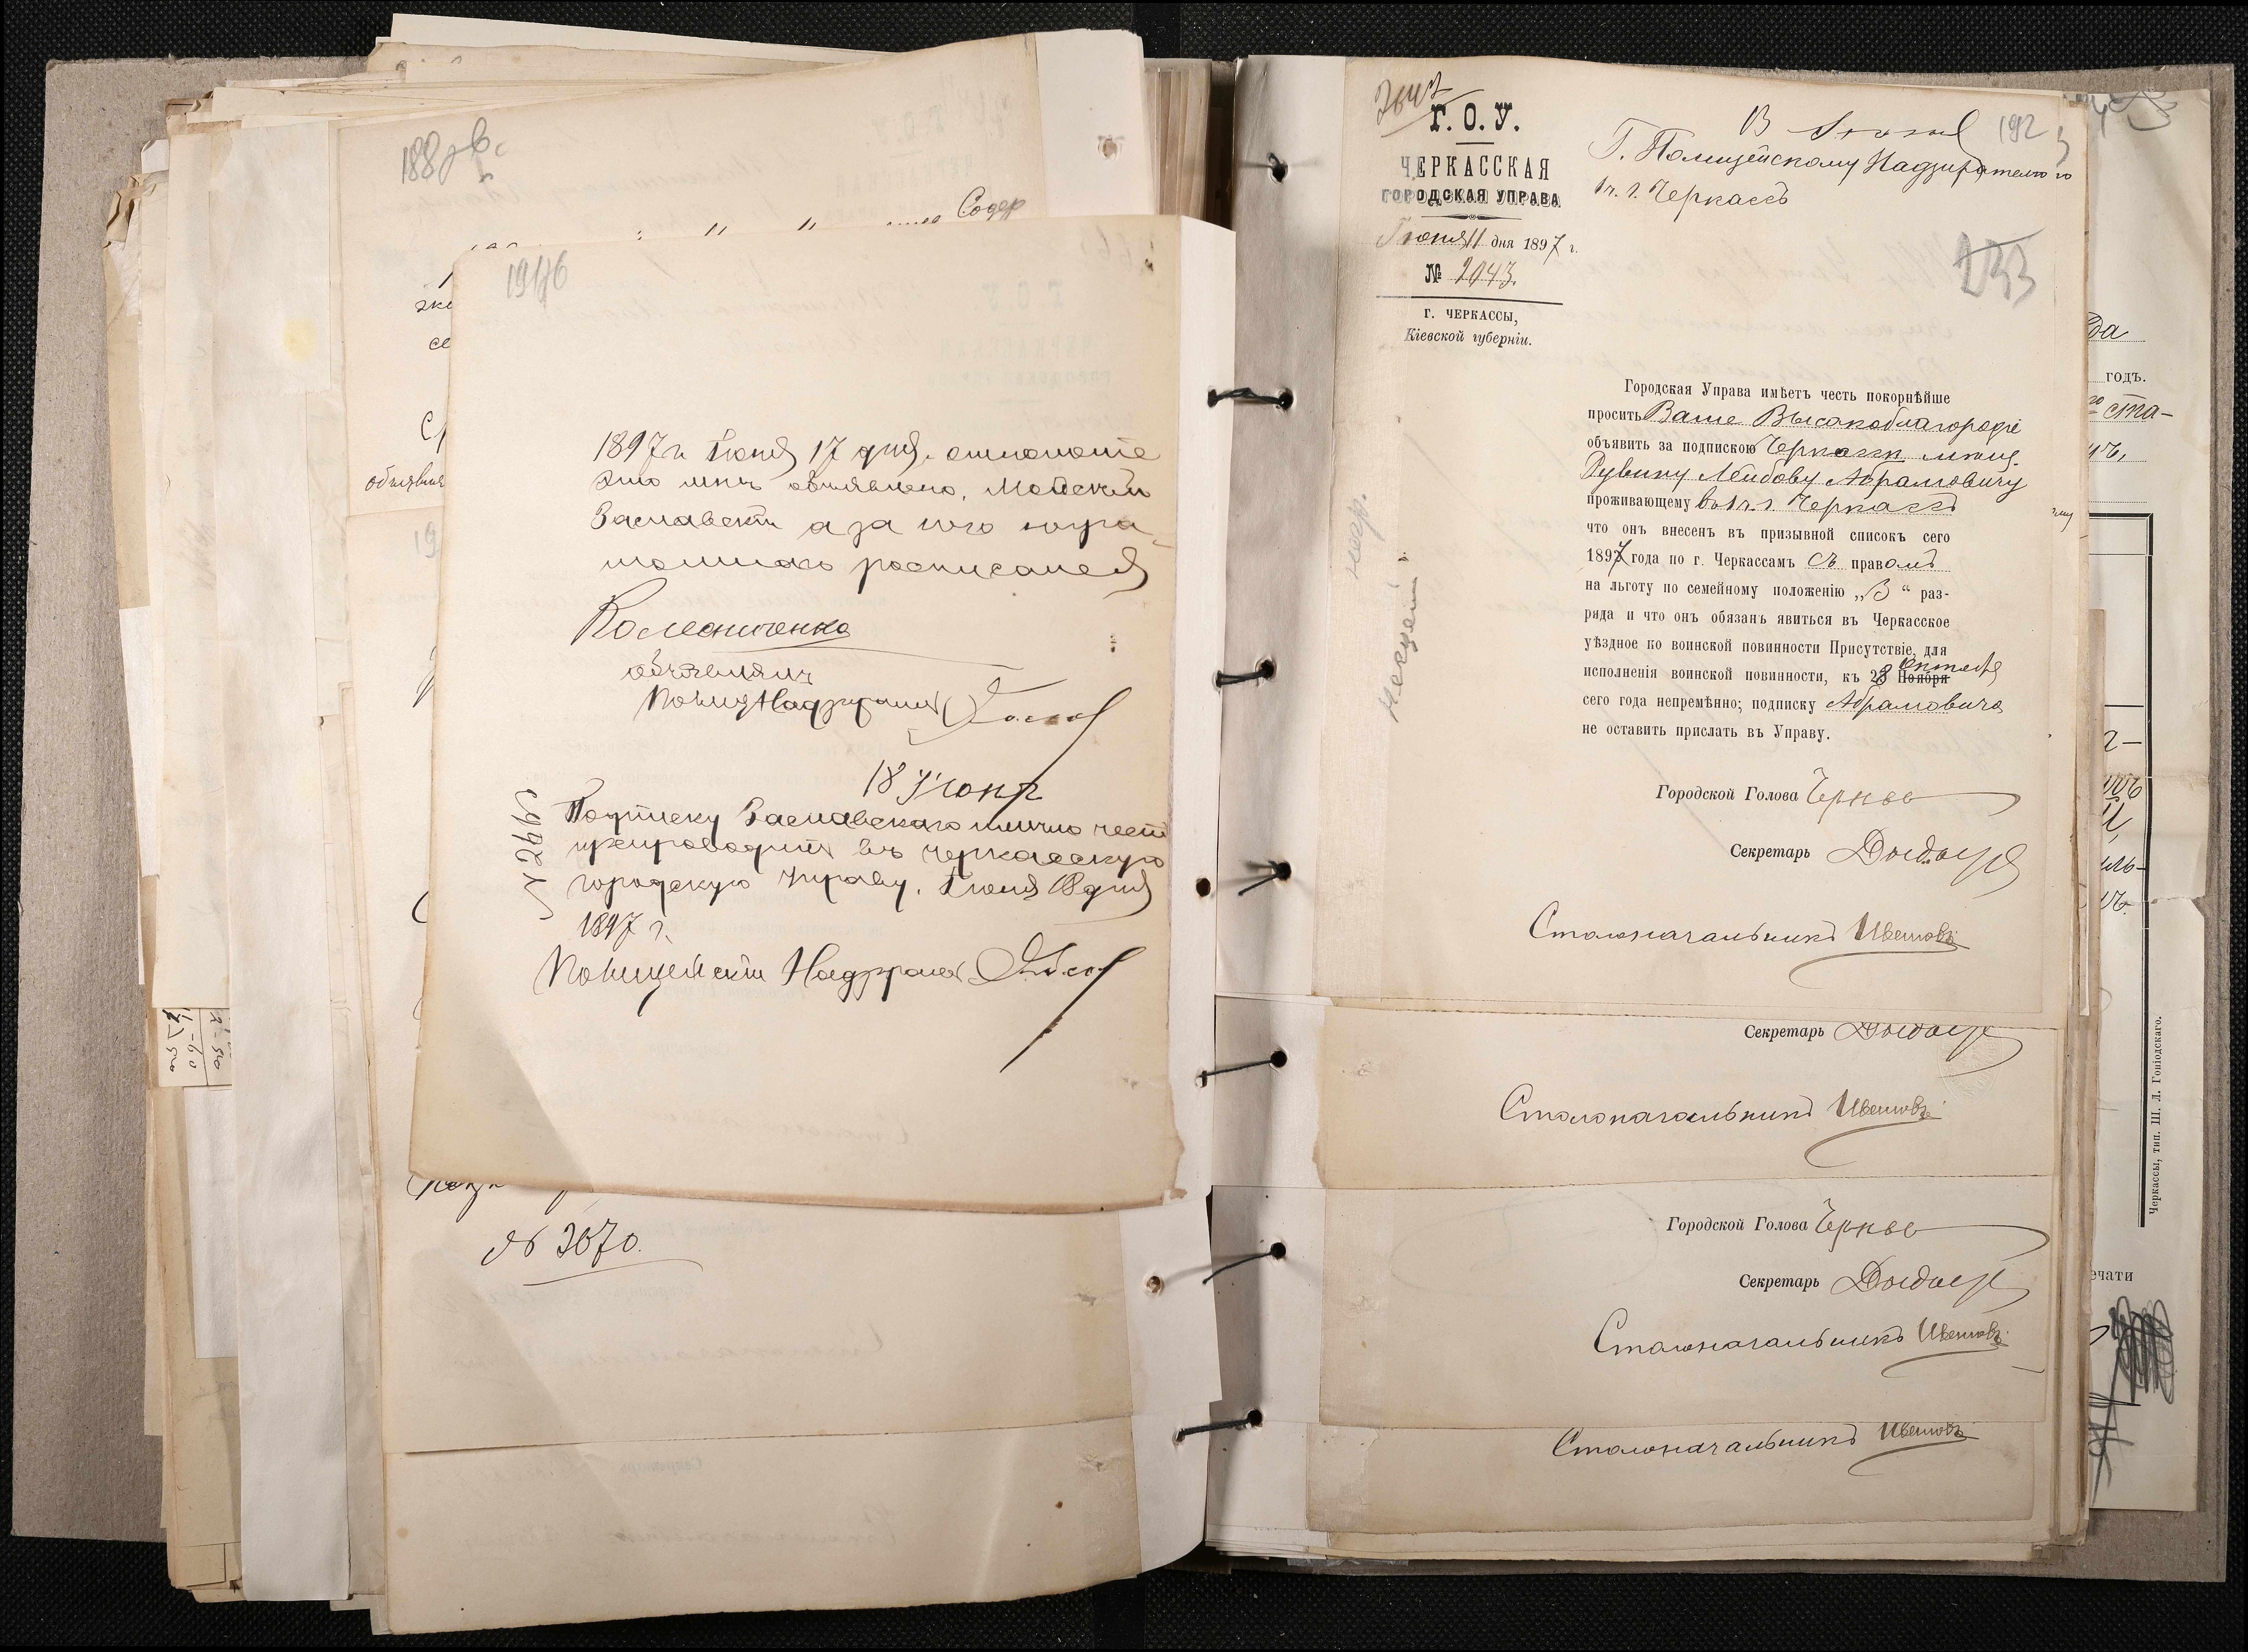 188
Содер
191
1897 г. Іюня 17 дня. отношеніе
это мнѣ объявлено, Мойсей
Заславскій а за него негра
мотнаго росписался
Колесниченко
объявлялъ
Полиц Надзиратель
18 Июня
Подписку Заславскаго лично честь
препроводить въ черкасскую
городскую Управу. Іюня 18 дня
1897 г.
Полицейскій Надзиратель
№ 3670.
Г. О. У.
ЧЕРКАССКАЯ
ГОРОДСКАЯ УПРАВА
Іюня 11 дня 1897 г.
№ 2043.
Г. ЧЕРКАССЫ,
Кіевской губерніи.
13 Іюня
192
Г. Полицейскому Надзирателю
1 ч. г. Черкассъ
233
Городская Управа имѣетъ честь покорнѣйше
просить Ваше Высокоблагородіе
объявить за подпискою Черкасск. мѣщ.
Рувину Лейбову Абрамовичу
проживающему въ 1 ч. г. Черкассъ
что онъ внесенъ въ призывной списокъ сего
1897 года по г. Черкассамъ съ правомъ
на льготу по семейному положенію „3“ раз-
ряда и что онъ обязанъ явиться въ Черкасское
уѣздное по воинской повинности Присутствіе, для
исполненія воинской повинности, къ 23 Ноября Октября
сего года непремѣнно; подписку Абрамовича
не оставить прислать въ Управу.
Городской Голова
Секретарь
Столоначальникъ Цвѣтовъ
Секретарь
Столоначальникъ Цвѣтовъ
Городской Голова
Секретарь
Столоначальникъ Цвѣтовъ
Столоначальникъ Цвѣтовъ
годъ.
ста-
Черкассы, тип. Ш. Л. Гоніодскаго.
ечати